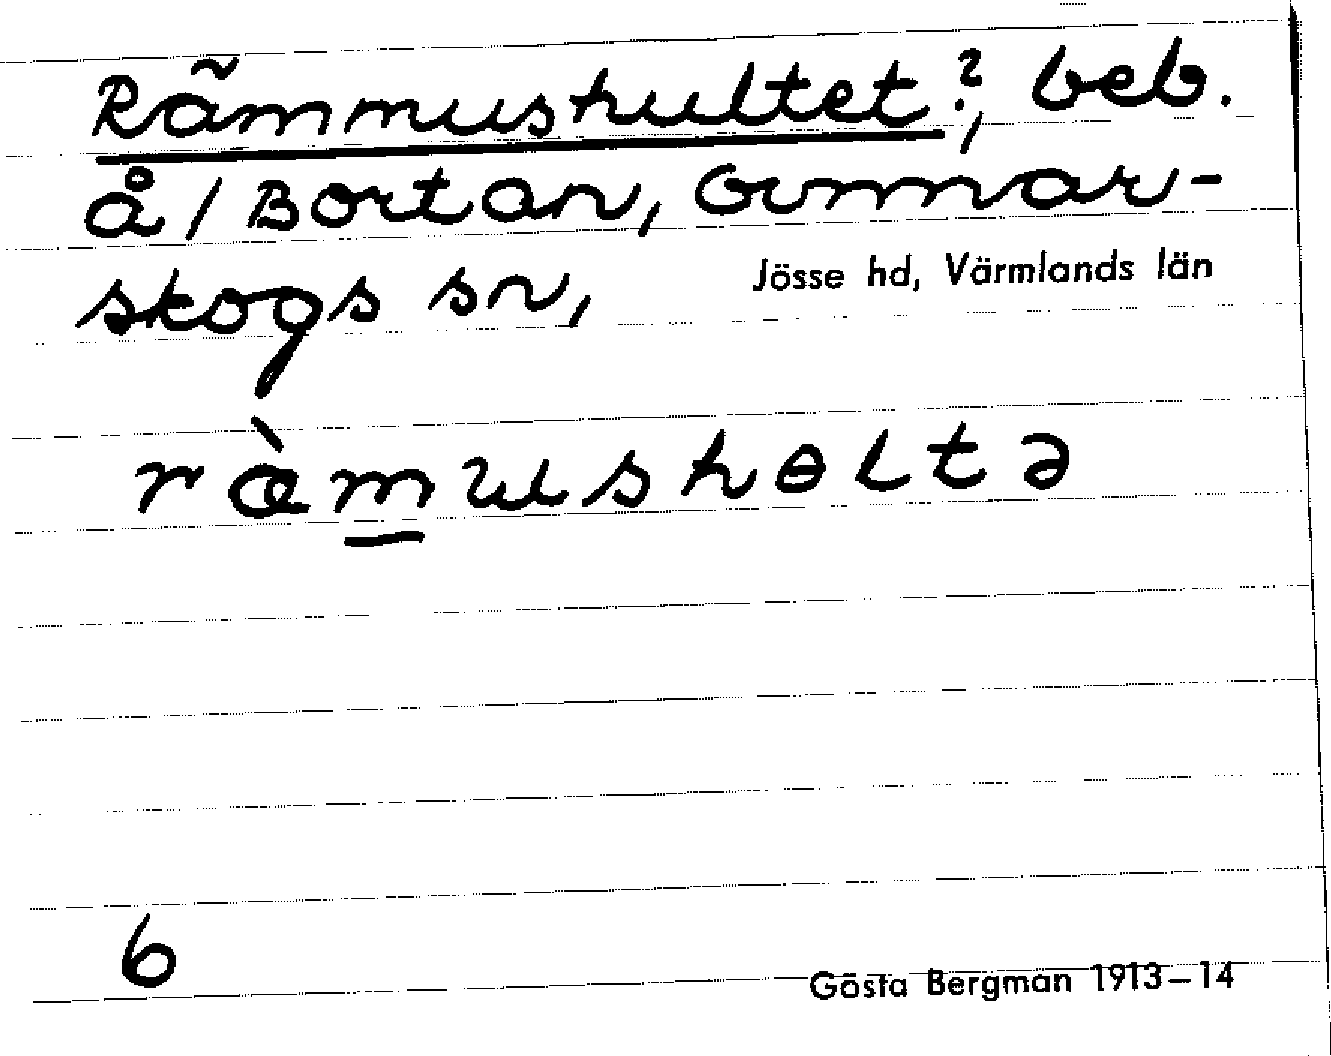 Rãmmushultet?, beb.
å / Bortan, Gunnar-
skogs sn, Jösse hd, Värmlands län
ræ̀m̲ushɵltə
6
Gösta Bergman 1913–14